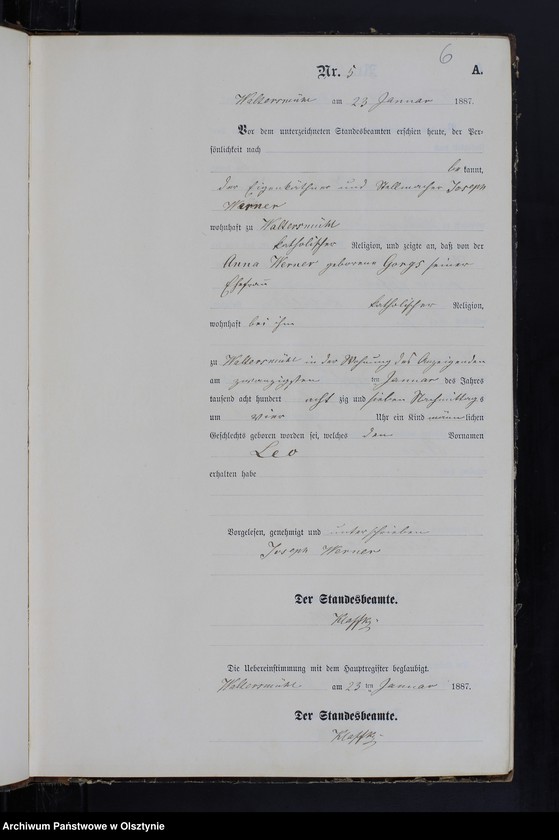 6
Nr. 5 A.
Waltersmühl am 23 Januar 1887.
Vor dem unterzeichneten Standesbeamten erschien heute, der Per-
sönlichkeit nach
be kannt,
der Eigenkäthner und Stellmacher Joseph
Werner
wohnhaft zu Waltersmühl
katholischer Religion, und zeigte an, daß von der
Anna Werner geborene Gorgs seiner
Ehefrau
katholischer Religion,
wohnhaft bei ihm
zu Waltersmühl in der Wohnung des Anzeigenden
am zwanzigsten ten Januar des Jahres
tausend acht hundert acht zig und sieben Nachmittag s
um vier Uhr ein Kind männ lichen
Geschlechts geboren worden sei, welches den Vornamen
Leo
erhalten habe
Vorgelesen, genehmigt und unterschrieben
Joseph Werner
Der Standesbeamte.
Die Uebereinstimmung mit dem Hauptregister beglaubigt.
Waltersmühl am 23 ten Januar 1887.
Der Standesbeamte.
Archiwum Państwowe w Olsztynie